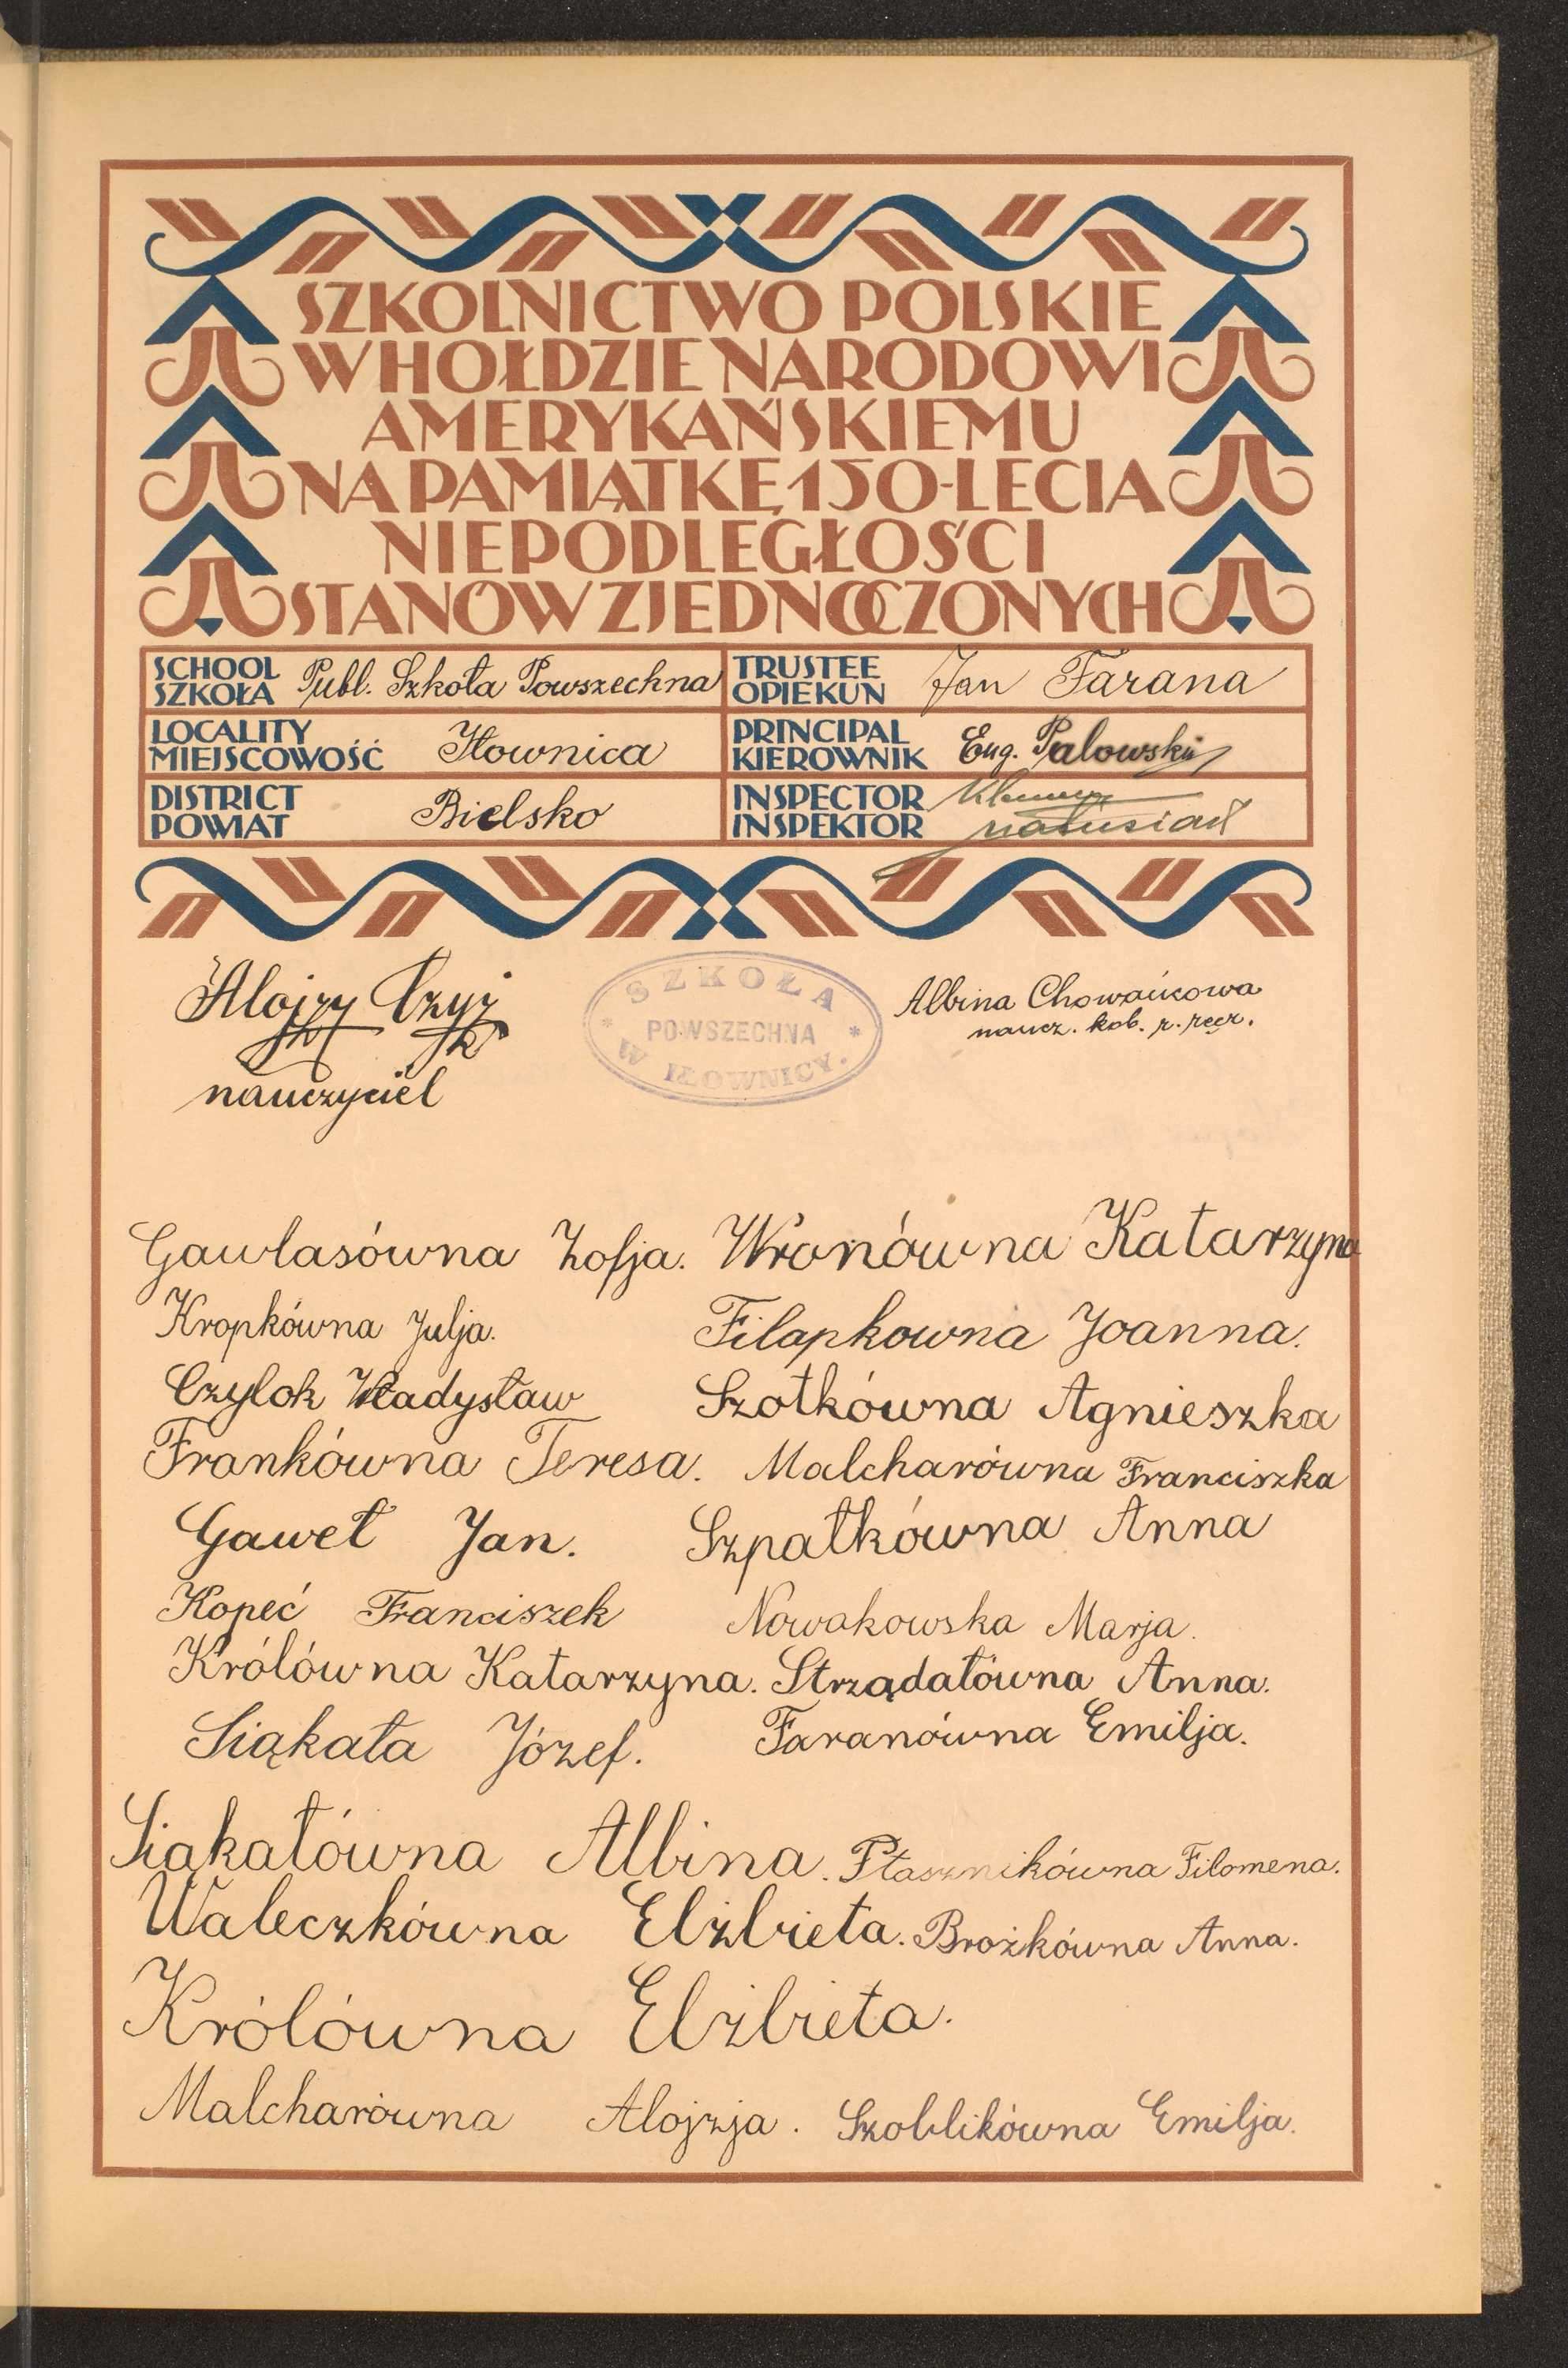 SZKOLNICTWO POLSKIE
W HOŁDZIE NARODOWI
AMERYKAŃSKIEMU
NA PAMIĄTKĘ 150-LECIA
NIEPODLEGŁOŚCI
STANÓW ZJEDNOCZONYCH
SCHOOL
SZKOŁA Publ. Szkoła Powszechna
TRUSTEE
OPIEKUN Jan Farana
LOCALITY
MIEJSCOWOŚĆ Iłownica
PRINCIPAL
KIEROWNIK Eug. Palowski
DISTRICT
POWIAT Bielsko
INSPECTOR
INSPEKTOR Matusiak
Alojzy Czyż
nauczyciel
SZKOŁA
POWSZECHNA
W IŁOWNICY.
Albina Chowańcowa
naucz. kob. r. ręcz.
Gawlasówna Zofja. Wronówna Katarzyna
Kropkówna Julja. Filapkowna Joanna.
Czylok Władysław Szotkówna Agnieszka
Frankówna Teresa. Malcharówna Franciszka
Gaweł Jan. Szpatkówna Anna
Kopeć Franciszek Nowakowska Marja.
Królówna Katarzyna. Strządałówna Anna.
Siąkała Józef. Faranówna Emilja.
Siąkałówna Albina. Ptasznikówna Filomena.
Waleczkówna Elżbieta. Brożkówna Anna.
Królówna Elżbieta.
Malcharówna Alojzja. Szoblikówna Emilja.